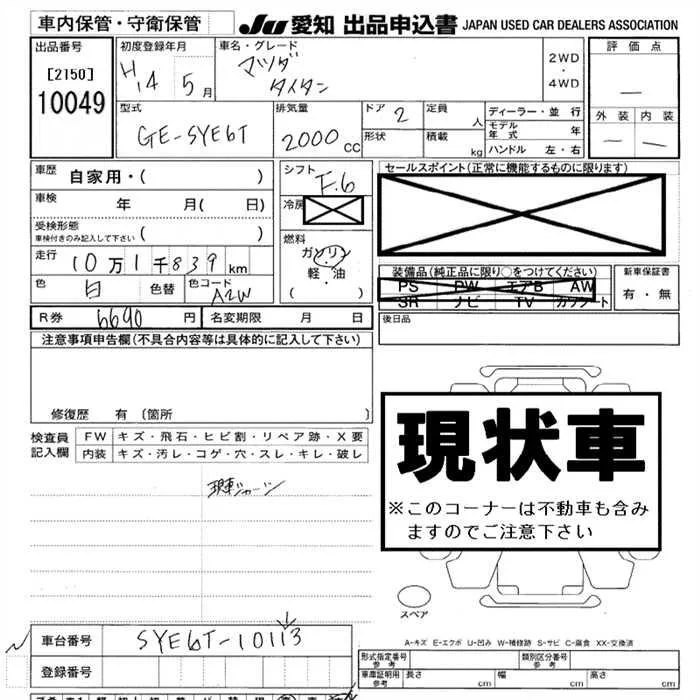 車内保管・守衛保管
JU 愛知 出品申込書 JAPAN USED CAR DEALERS ASSOCIATION
出品番号
[2150]
10049
初度登録年月
H14 5月
車名・グレード
マツダ
タイタン
2WD
・
4WD
評価点
—
外装 内装
— —
型式
GE-SYE6T
排気量
2000cc
ドア 2
形状
定員 人
積載 kg
ディーラー・並行
モデル年式 年
ハンドル 左・右
車歴 自家用・( )
車検 年 月(日)
受検形態
車検付きのみ記入して下さい ( )
走行 10万1千839km
色 白 色替 色コード A2W
シフト F.6
冷房
燃料
ガソリン
軽・油
( )
セールスポイント(正常に機能するものに限ります)
装備品(純正品に限り○をつけてください)
PS PW エアB AW
SR ナビ TV カワシート
新車保証書
有・無
後日品
R券 6690円 名変期限 月 日
注意事項申告欄(不具合内容等は具体的に記入して下さい)
修復歴 有 〔箇所 〕
検査員記入欄
FW キズ・飛石・ヒビ割・リペア跡・X要
内装 キズ・汚レ・コゲ・穴・スレ・キレ・破レ
現車
現状車
※このコーナーは不動車も含みますのでご注意下さい
スペア
A-キズ E-エクボ U-凹み W-補修跡 S-サビ C-腐食 XX-交換済
車台番号 SYE6T-10113
登録番号
形式指定番号 参考
類別区分番号 参考
車庫証明用 参考 長さ cm 幅 cm 高さ cm